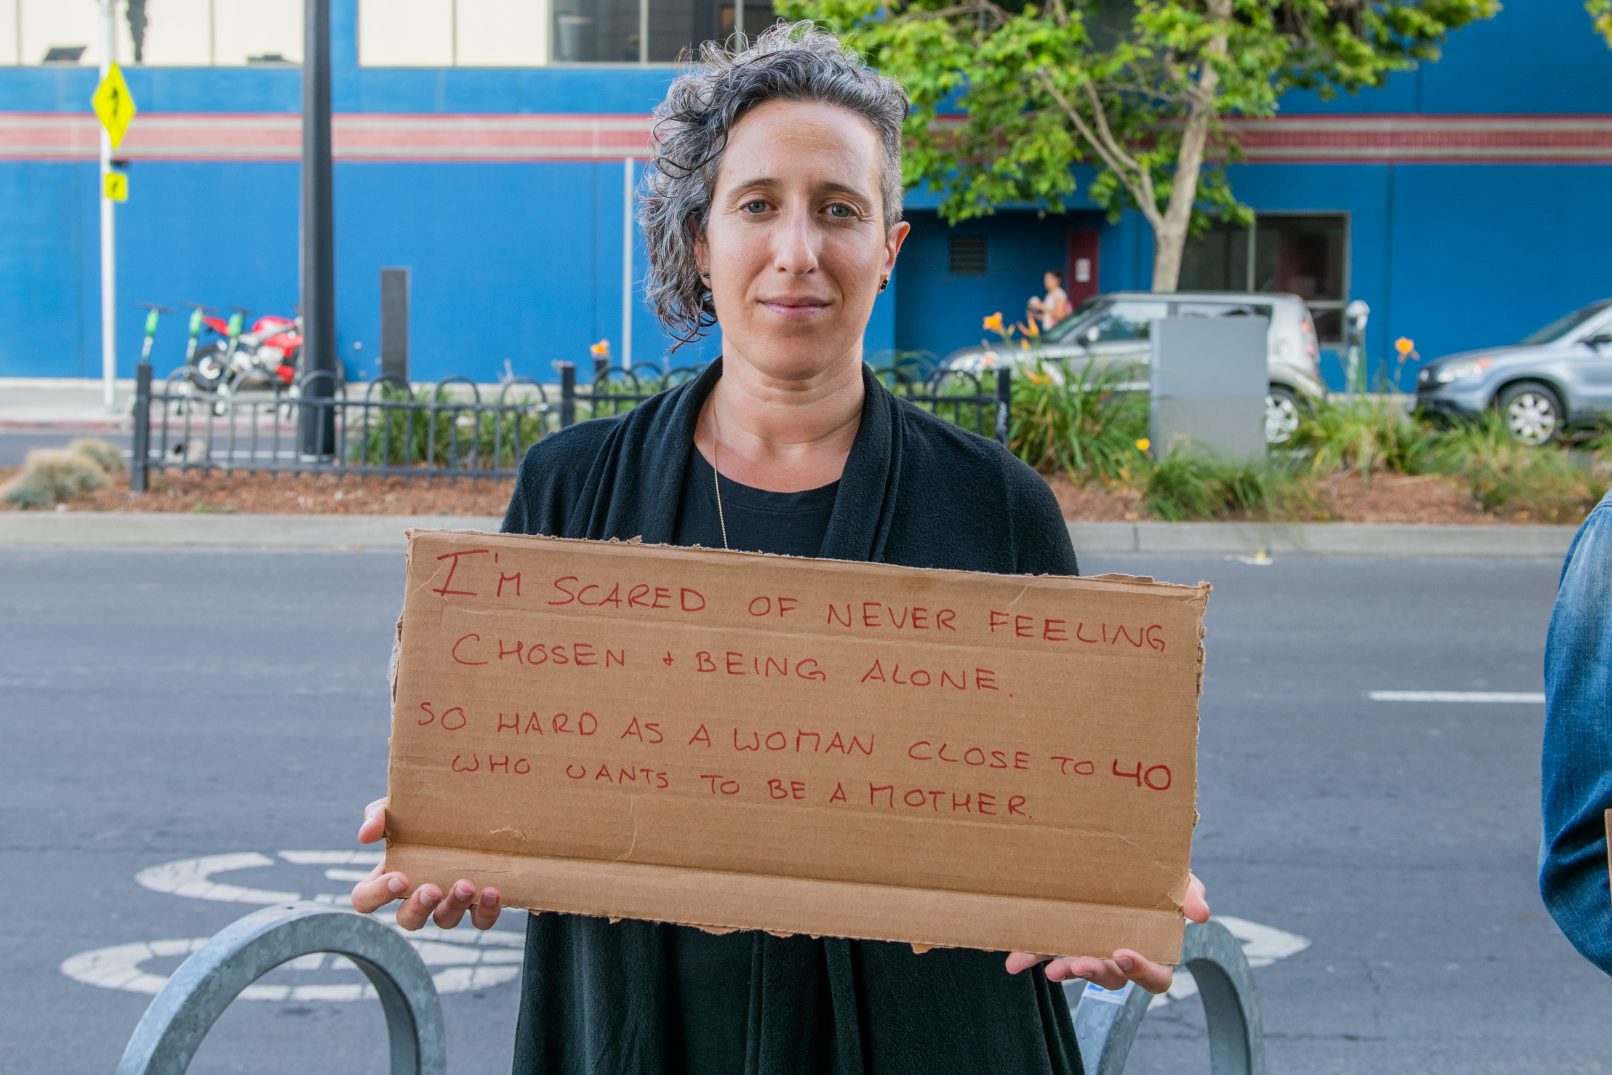 I'M SCARED OF NEVER FEELING
CHOSEN + BEING ALONE.
SO HARD AS A WOMAN CLOSE TO 40
WHO WANTS TO BE A MOTHER.